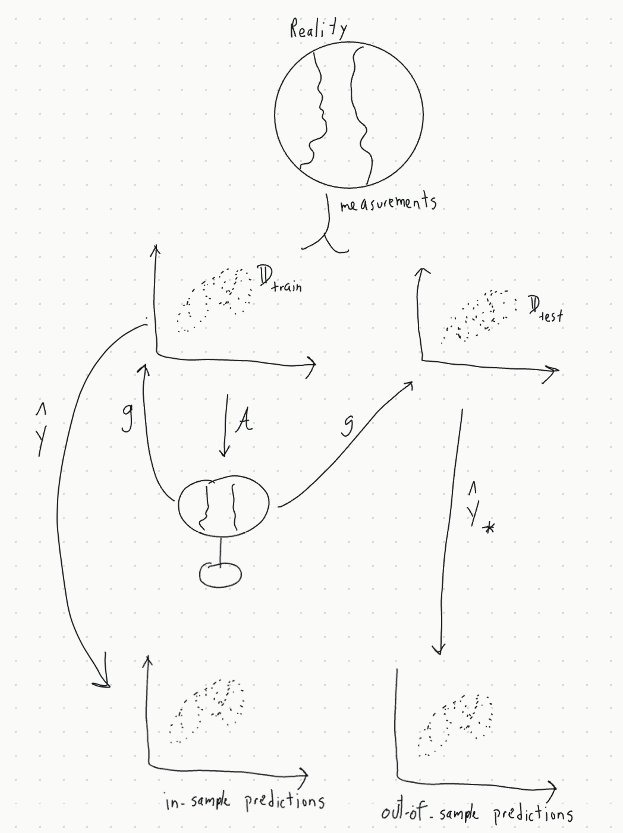 Reality
measurements
𝔻train
𝔻test
g
A
g
ŷ
ŷ*
in-sample predictions
out-of-sample predictions